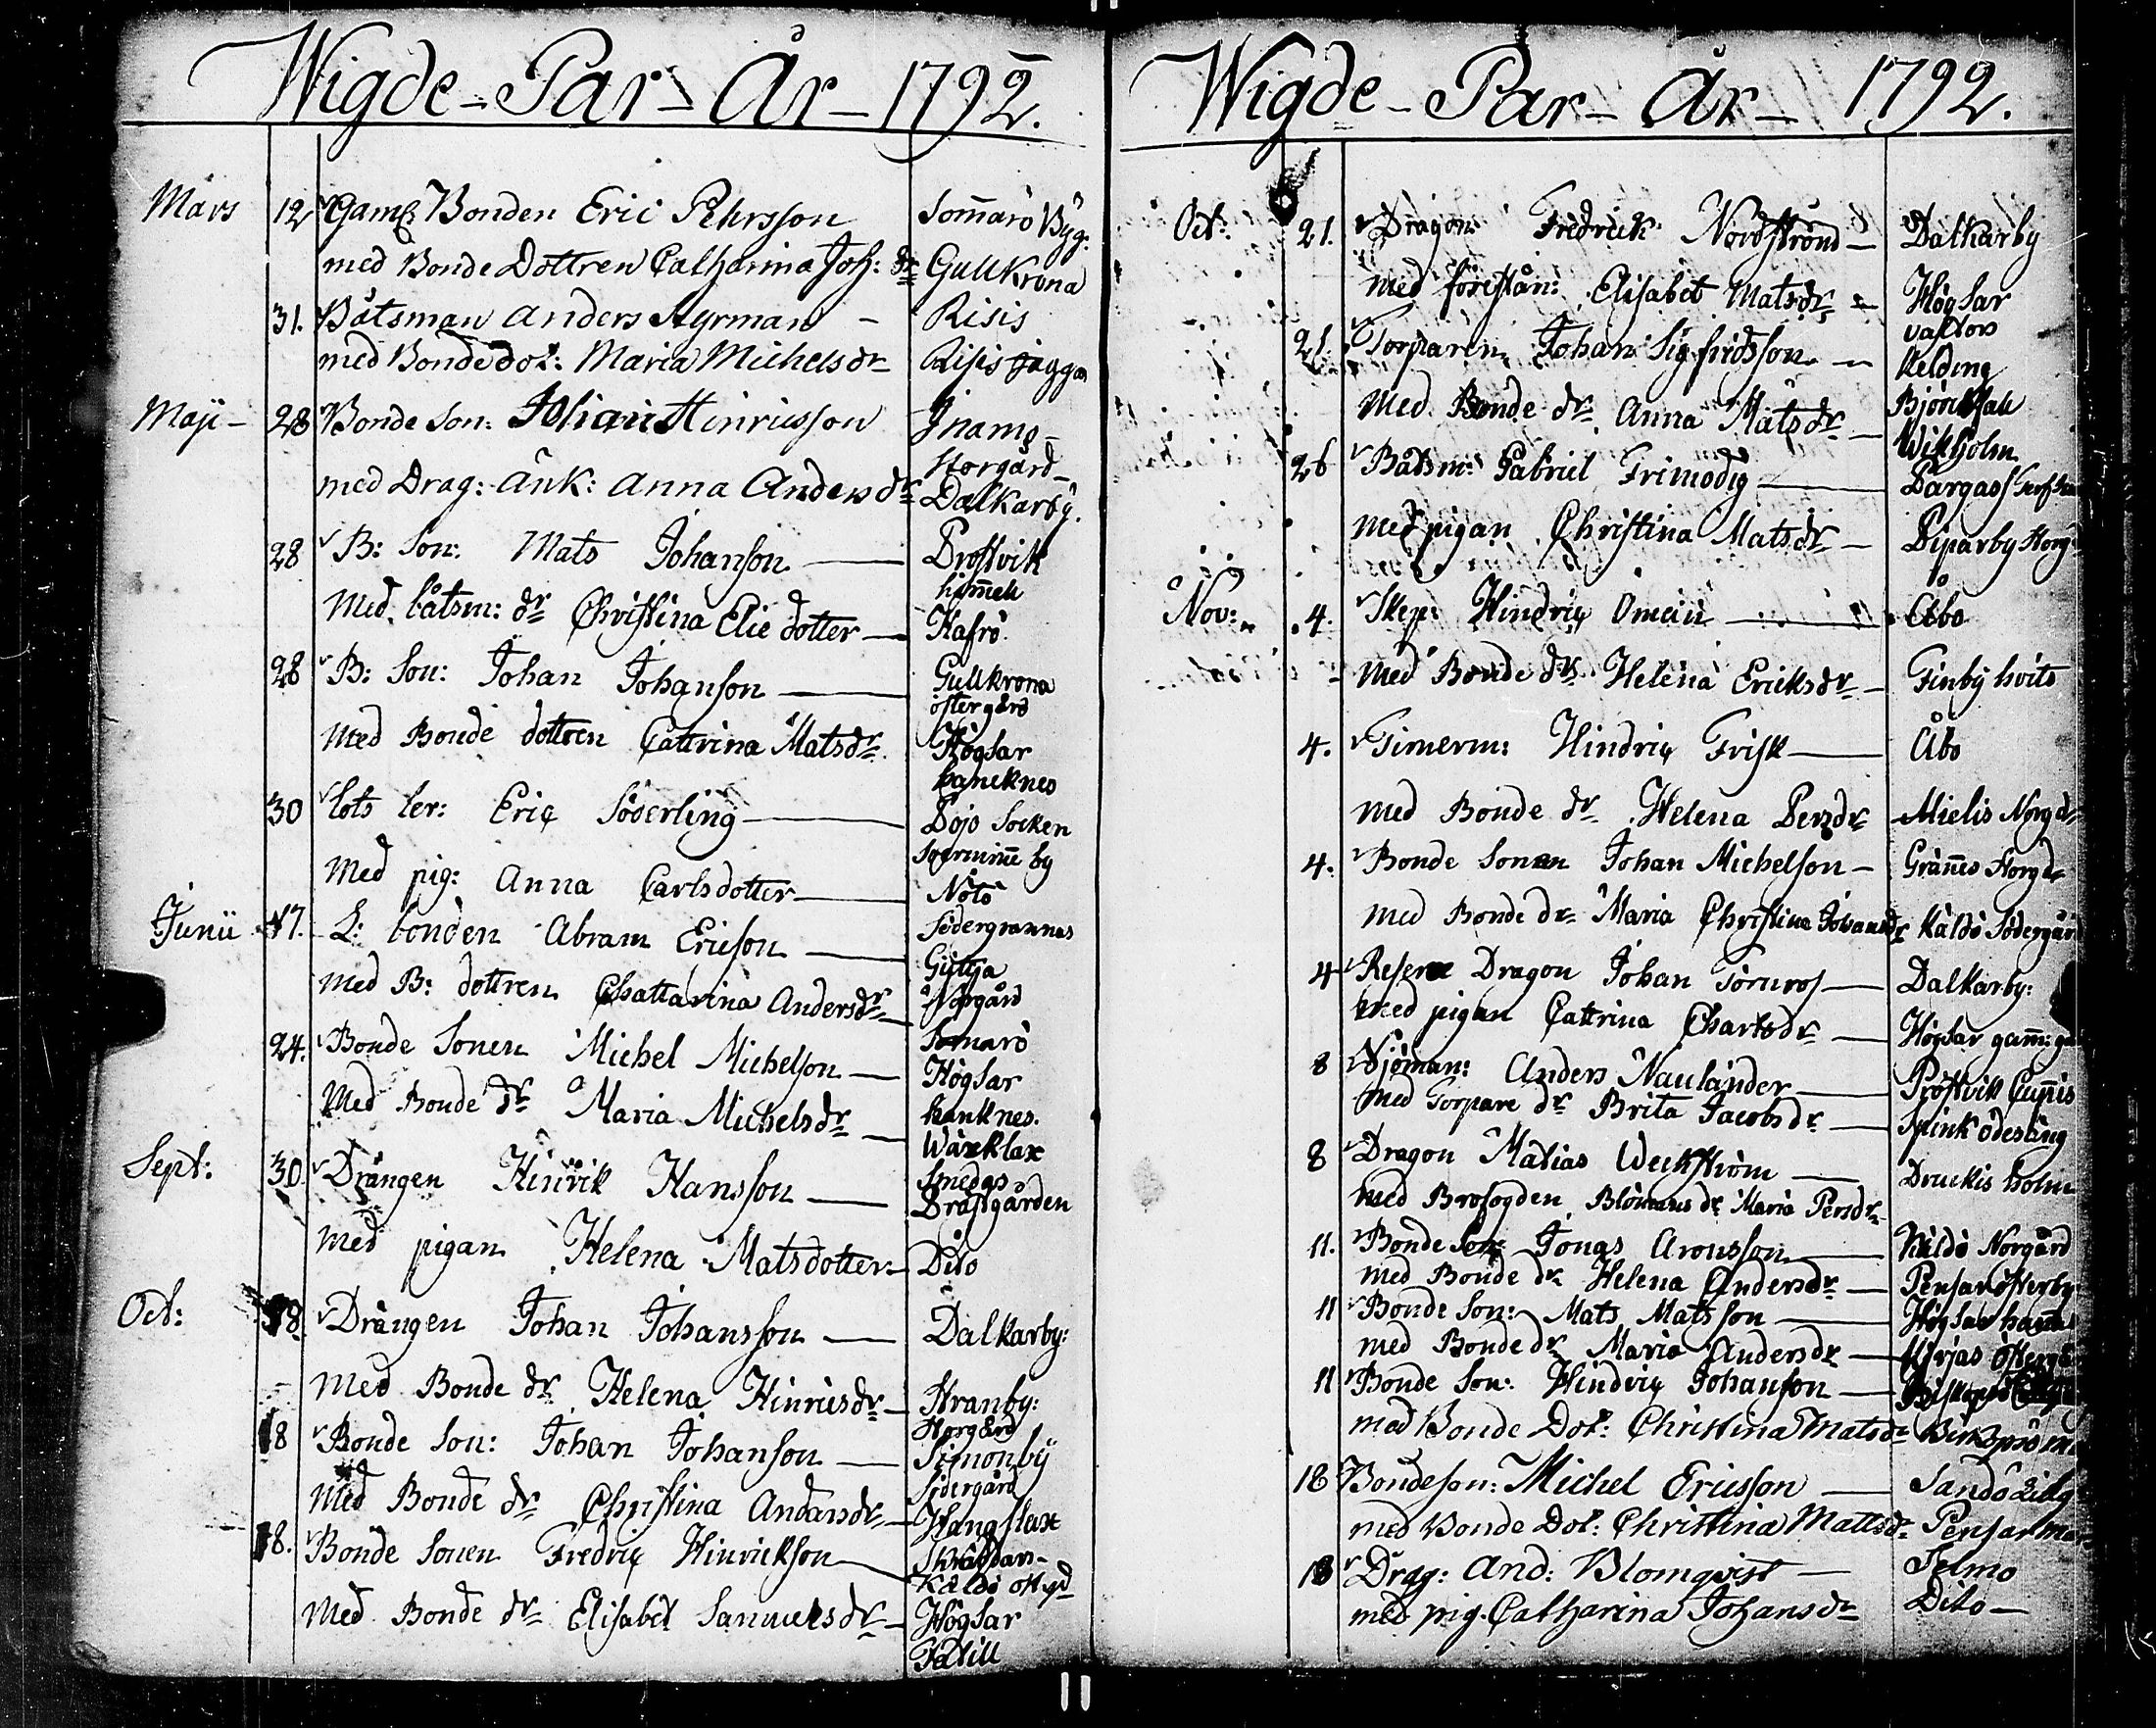 Wigde-Par-År-1792.
Mars 12 Gaml Bonden Eric Pehrsson Sommarö Byg:
med Bonde Dottren Catharina Joh: dr Gullkrona
31. Båtsman Anders Styrman - Risis
med Bondedot: Maria Michelsdr Risis
Maji - 28 Bonde Son: Johan Hinricsson
Storgård
med Drag: Änk: Anna Andersdr Dalkarby.
28 B: Son: Mats Johanson Prostvik
himmels
Med båtsm: dr Christina Elie dotter Hafrö
28 B: Son: Johan Johanson Gullkrona
östergård
Med Bonde dottren Cattrina Matsdr Högsar
baneknes
30 lots ler: Eric Söderling Dojo Socken
by
Med pig: Anna Carlsdotter Nötö
Södergrannas
Junii 17. L: bonden Abram Ericson Gyttja
Norgård
Med B: dottren Chattarina Andersdr Somarö
24. Bonde Sonen Michel Michelson Högsar
banknes.
Med Bonde dr Maria Michelsdr Wäxklax
Smedas
Sept: 30 Drängen Hinrik Hansson Prästgården
Med pigan Helena Matsdotter Dito
Oct: 18 Drängen Johan Johansson Dalkarby:
Med Bonde dr Helena Hinricsdr Stranby:
Norgård
18 Bonde Son: Johan Johanson Simonby
Södergård
Med Bonde dr Christina Andersdr Hangslax
Skräddars-
18. Bonde Sonen Fredric Hinrickson Käldö
Med Bonde dr Elisabet Samuelsdr Högsar
Fatill
Wigde-Par-År-1792.
Oct: 21. Dragon: Fredrick Nordström Dalkarby
Med förestån: Elisabet Matsdr Högsar
vastors
21. Torparen Johan Sigfridsson Kelding
Med Bonde dr Anna Matsdr
Wikholm
26 Båtsm: Gabriel Frimodig Pargas
med pigan Christina Matsdr Piparby
Nov: 4. Skep: Hindric Öman Åbo
Med Bonde dr Helena Ericksdr Finby hvits
4. Timerm: Hindric Frisk Åbo
med Bonde dr Helena Persdr Mielis Norgd
4. Bonde Sonen Johan Michelson Grännes Norgd
Med Bonde dr Maria Christina Johansdr Käldö Södergår
4 Reserve Dragon Johan Törnros Dalkarby:
Med pigan Cattrina Charlsdr Högsar
8 Sjöman: Anders Naulander Pröstvik
Med Torpare dr Brita Jacobsdr Spink ödesäng
8 Dragon Matias Weckström holm
med Brofogden Blomans dr Maria Persdr
11. Bonde Son: Jonas Aronsson Käldö Norgård
med Bonde dr Helena Andersdr Pensar österby
11 Bonde Son: Mats Matsson Högsar
med Bonde dr Maria Andersdr
11 Bonde Son: Hindric Johanson
med Bonde Dot: Christina Matsdr
18 Bondeson: Michel Ericsson Sandö
med Bonde Dot: Christina Mattsdr Pensar
18 Drag: And: Blomqvist Jelmo
med pig. Catharina Johansdr Dito